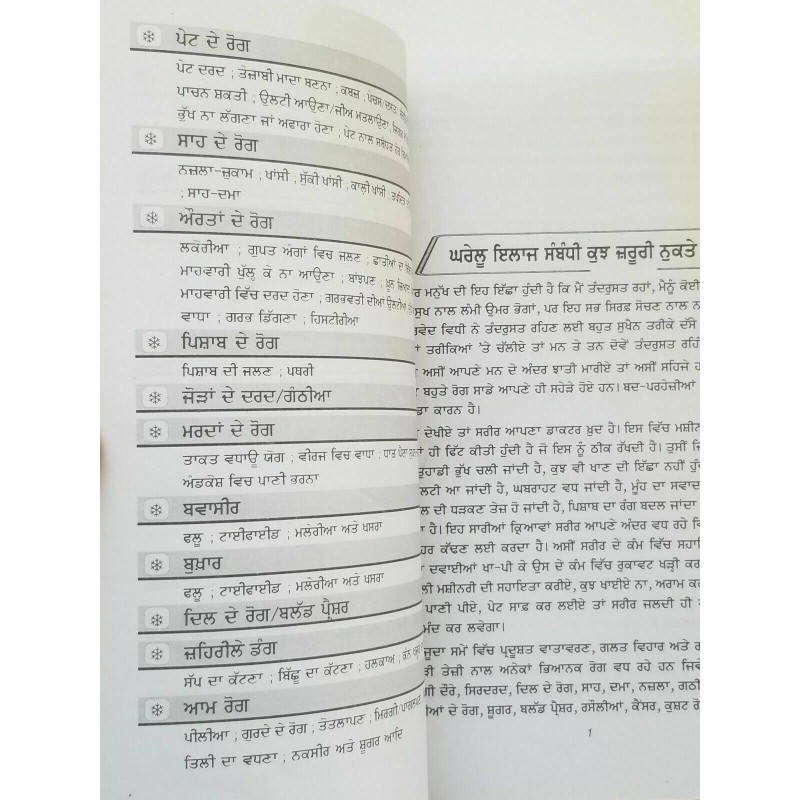 ਪੇਟ ਦੇ ਰੋਗ
ਪੇਟ ਦਰਦ ; ਤੇਜ਼ਾਬੀ ਮਾਦਾ ਬਣਨਾ ; ਕਬਜ਼ ; ਪੇਚਸ਼/ਦਸਤ
ਪਾਚਨ ਸ਼ਕਤੀ ; ਉਲਟੀ ਆਉਣਾ/ਜੀਅ ਮਤਲਾਉਣਾ
ਭੁੱਖ ਨਾ ਲੱਗਣਾ ਜਾਂ ਅਵਾਰਾ ਹੋਣਾ ; ਪੇਟ ਨਾਲ ਸਬੰਧਤ ਰੋਗ
ਸਾਹ ਦੇ ਰੋਗ
ਨਜ਼ਲਾ-ਜ਼ੁਕਾਮ ; ਖਾਂਸੀ ; ਸੁੱਕੀ ਖਾਂਸੀ ; ਕਾਲੀ ਖਾਂਸੀ
; ਸਾਹ-ਦਮਾ
ਔਰਤਾਂ ਦੇ ਰੋਗ
ਲਕੋਰੀਆ ; ਗੁਪਤ ਅੰਗਾਂ ਵਿਚ ਜਲਣ ; ਛਾਤੀਆਂ ਦਾ
ਮਾਹਵਾਰੀ ਖੁੱਲ੍ਹ ਕੇ ਨਾ ਆਉਣਾ ; ਬਾਂਝਪਣ ; ਖ਼ੂਨ
ਮਾਹਵਾਰੀ ਵਿੱਚ ਦਰਦ ਹੋਣਾ ; ਗਰਭਵਤੀ ਦੀਆਂ ਉਲਟੀਆਂ
ਵਾਧਾ ; ਗਰਭ ਡਿੱਗਣਾ ; ਹਿਸਟੀਰੀਆ
ਪਿਸ਼ਾਬ ਦੇ ਰੋਗ
ਪਿਸ਼ਾਬ ਦੀ ਜਲਣ ; ਪਥਰੀ
ਜੋੜਾਂ ਦੇ ਦਰਦ/ਗੰਠੀਆ
ਮਰਦਾਂ ਦੇ ਰੋਗ
ਤਾਕਤ ਵਧਾਊ ਯੋਗ ; ਵੀਰਜ ਵਿਚ ਵਾਧਾ ; ਧਾਤ ਪੈਣਾ
ਅੰਡਕੋਸ਼ ਵਿਚ ਪਾਣੀ ਭਰਨਾ
ਬਵਾਸੀਰ
ਫਲੂ ; ਟਾਈਫਾਈਡ ; ਮਲੇਰੀਆ ਅਤੇ ਖਸਰਾ
ਬੁਖ਼ਾਰ
ਫਲੂ ; ਟਾਈਫਾਈਡ ; ਮਲੇਰੀਆ ਅਤੇ ਖਸਰਾ
ਦਿਲ ਦੇ ਰੋਗ/ਬਲੱਡ ਪ੍ਰੈਸ਼ਰ
ਜ਼ਹਿਰੀਲੇ ਡੰਗ
ਸੱਪ ਦਾ ਕੱਟਣਾ ; ਬਿੱਛੂ ਦਾ ਕੱਟਣਾ ; ਹਲਕਾਅ ; ਕੰਨ
ਆਮ ਰੋਗ
ਪੀਲੀਆ ; ਗੁਰਦੇ ਦੇ ਰੋਗ ; ਤੋਤਲਾਪਣ ; ਮਿਰਗੀ/ਪਾਗਲਪਣ
ਤਿਲੀ ਦਾ ਵਧਣਾ ; ਨਕਸੀਰ ਅਤੇ ਸ਼ੂਗਰ ਆਦਿ
ਘਰੇਲੂ ਇਲਾਜ ਸੰਬੰਧੀ ਕੁਝ ਜ਼ਰੂਰੀ ਨੁਕਤੇ
ਮਨੁੱਖ ਦੀ ਇਹ ਇੱਛਾ ਹੁੰਦੀ ਹੈ ਕਿ ਮੈਂ ਤੰਦਰੁਸਤ ਰਹਾਂ, ਮੈਨੂੰ ਕੋਈ
ਸੁਖ ਨਾਲ ਲੰਮੀ ਉਮਰ ਭੋਗਾਂ, ਪਰ ਇਹ ਸਭ ਸਿਰਫ਼ ਸੋਚਣ ਨਾਲ
ਵਿਧੀ ਨੇ ਤੰਦਰੁਸਤ ਰਹਿਣ ਲਈ ਬਹੁਤ ਸੁਖੈਨ ਤਰੀਕੇ ਦੱਸੇ
ਤਰੀਕਿਆਂ 'ਤੇ ਚੱਲੀਏ ਤਾਂ ਮਨ ਤੇ ਤਨ ਦੋਵੇਂ ਤੰਦਰੁਸਤ
ਅਸੀਂ ਆਪਣੇ ਮਨ ਦੇ ਅੰਦਰ ਝਾਤੀ ਮਾਰੀਏ ਤਾਂ ਅਸੀਂ ਸਹਿਜੇ
ਬਹੁਤੇ ਰੋਗ ਸਾਡੇ ਆਪਣੇ ਹੀ ਸਹੇੜੇ ਹੋਏ ਹਨ। ਬਦ-ਪਰਹੇਜ਼ੀਆਂ
ਕਾਰਨ ਹੈ।
ਦੇਖੀਏ ਤਾਂ ਸਰੀਰ ਆਪਣਾ ਡਾਕਟਰ ਖ਼ੁਦ ਹੈ। ਇਸ ਵਿੱਚ
ਹੀ ਫਿੱਟ ਕੀਤੀ ਹੁੰਦੀ ਹੈ ਜੋ ਇਸ ਨੂੰ ਠੀਕ ਰੱਖਦੀ ਹੈ। ਤੁਸੀਂ
ਤੁਹਾਡੀ ਭੁੱਖ ਚਲੀ ਜਾਂਦੀ ਹੈ, ਕੁਝ ਵੀ ਖਾਣ ਦੀ ਇੱਛਾ ਨਹੀਂ
ਆ ਜਾਂਦੀ ਹੈ, ਘਬਰਾਹਟ ਵਧ ਜਾਂਦੀ ਹੈ, ਮੂੰਹ ਦਾ ਸਵਾਦ
ਦੀ ਧੜਕਣ ਤੇਜ਼ ਹੋ ਜਾਂਦੀ ਹੈ, ਪਿਸ਼ਾਬ ਦਾ ਰੰਗ ਬਦਲ ਜਾਂਦਾ
ਹੈ। ਇਹ ਸਾਰੀਆਂ ਕ੍ਰਿਆਵਾਂ ਸਰੀਰ ਆਪਣੇ ਅੰਦਰ ਵਧ ਰਹੇ
ਕੱਢਣ ਲਈ ਕਰਦਾ ਹੈ। ਅਸੀਂ ਸਰੀਰ ਦੇ ਕੰਮ ਵਿੱਚ
ਦਵਾਈਆਂ ਖਾ-ਪੀ ਕੇ ਉਸ ਦੇ ਕੰਮ ਵਿੱਚ ਰੁਕਾਵਟ ਖੜ੍ਹੀ
ਮਸ਼ੀਨਰੀ ਦੀ ਸਹਾਇਤਾ ਕਰੀਏ, ਕੁਝ ਖਾਈਏ ਨਾ, ਅਰਾਮ
ਪਾਣੀ ਪੀਏ, ਪੇਟ ਸਾਫ਼ ਕਰ ਲਈਏ ਤਾਂ ਸਰੀਰ ਜਲਦੀ ਹੀ
ਕਰ ਲਵੇਗਾ।
ਸਮੇਂ ਵਿੱਚ ਪ੍ਰਦੂਸ਼ਤ ਵਾਤਾਵਰਣ, ਗਲਤ ਵਿਹਾਰ ਅਤੇ
ਤੇਜ਼ੀ ਨਾਲ ਅਨੇਕਾਂ ਭਿਆਨਕ ਰੋਗ ਵਧ ਰਹੇ ਹਨ
ਦੌਰੇ, ਸਿਰਦਰਦ, ਦਿਲ ਦੇ ਰੋਗ, ਸਾਹ, ਦਮਾ, ਨਜ਼ਲਾ,
ਦੇ ਰੋਗ, ਸ਼ੂਗਰ, ਬਲੱਡ ਪ੍ਰੈਸ਼ਰ, ਰਸੌਲੀਆਂ, ਕੈਂਸਰ, ਕੁਸ਼ਟ
1